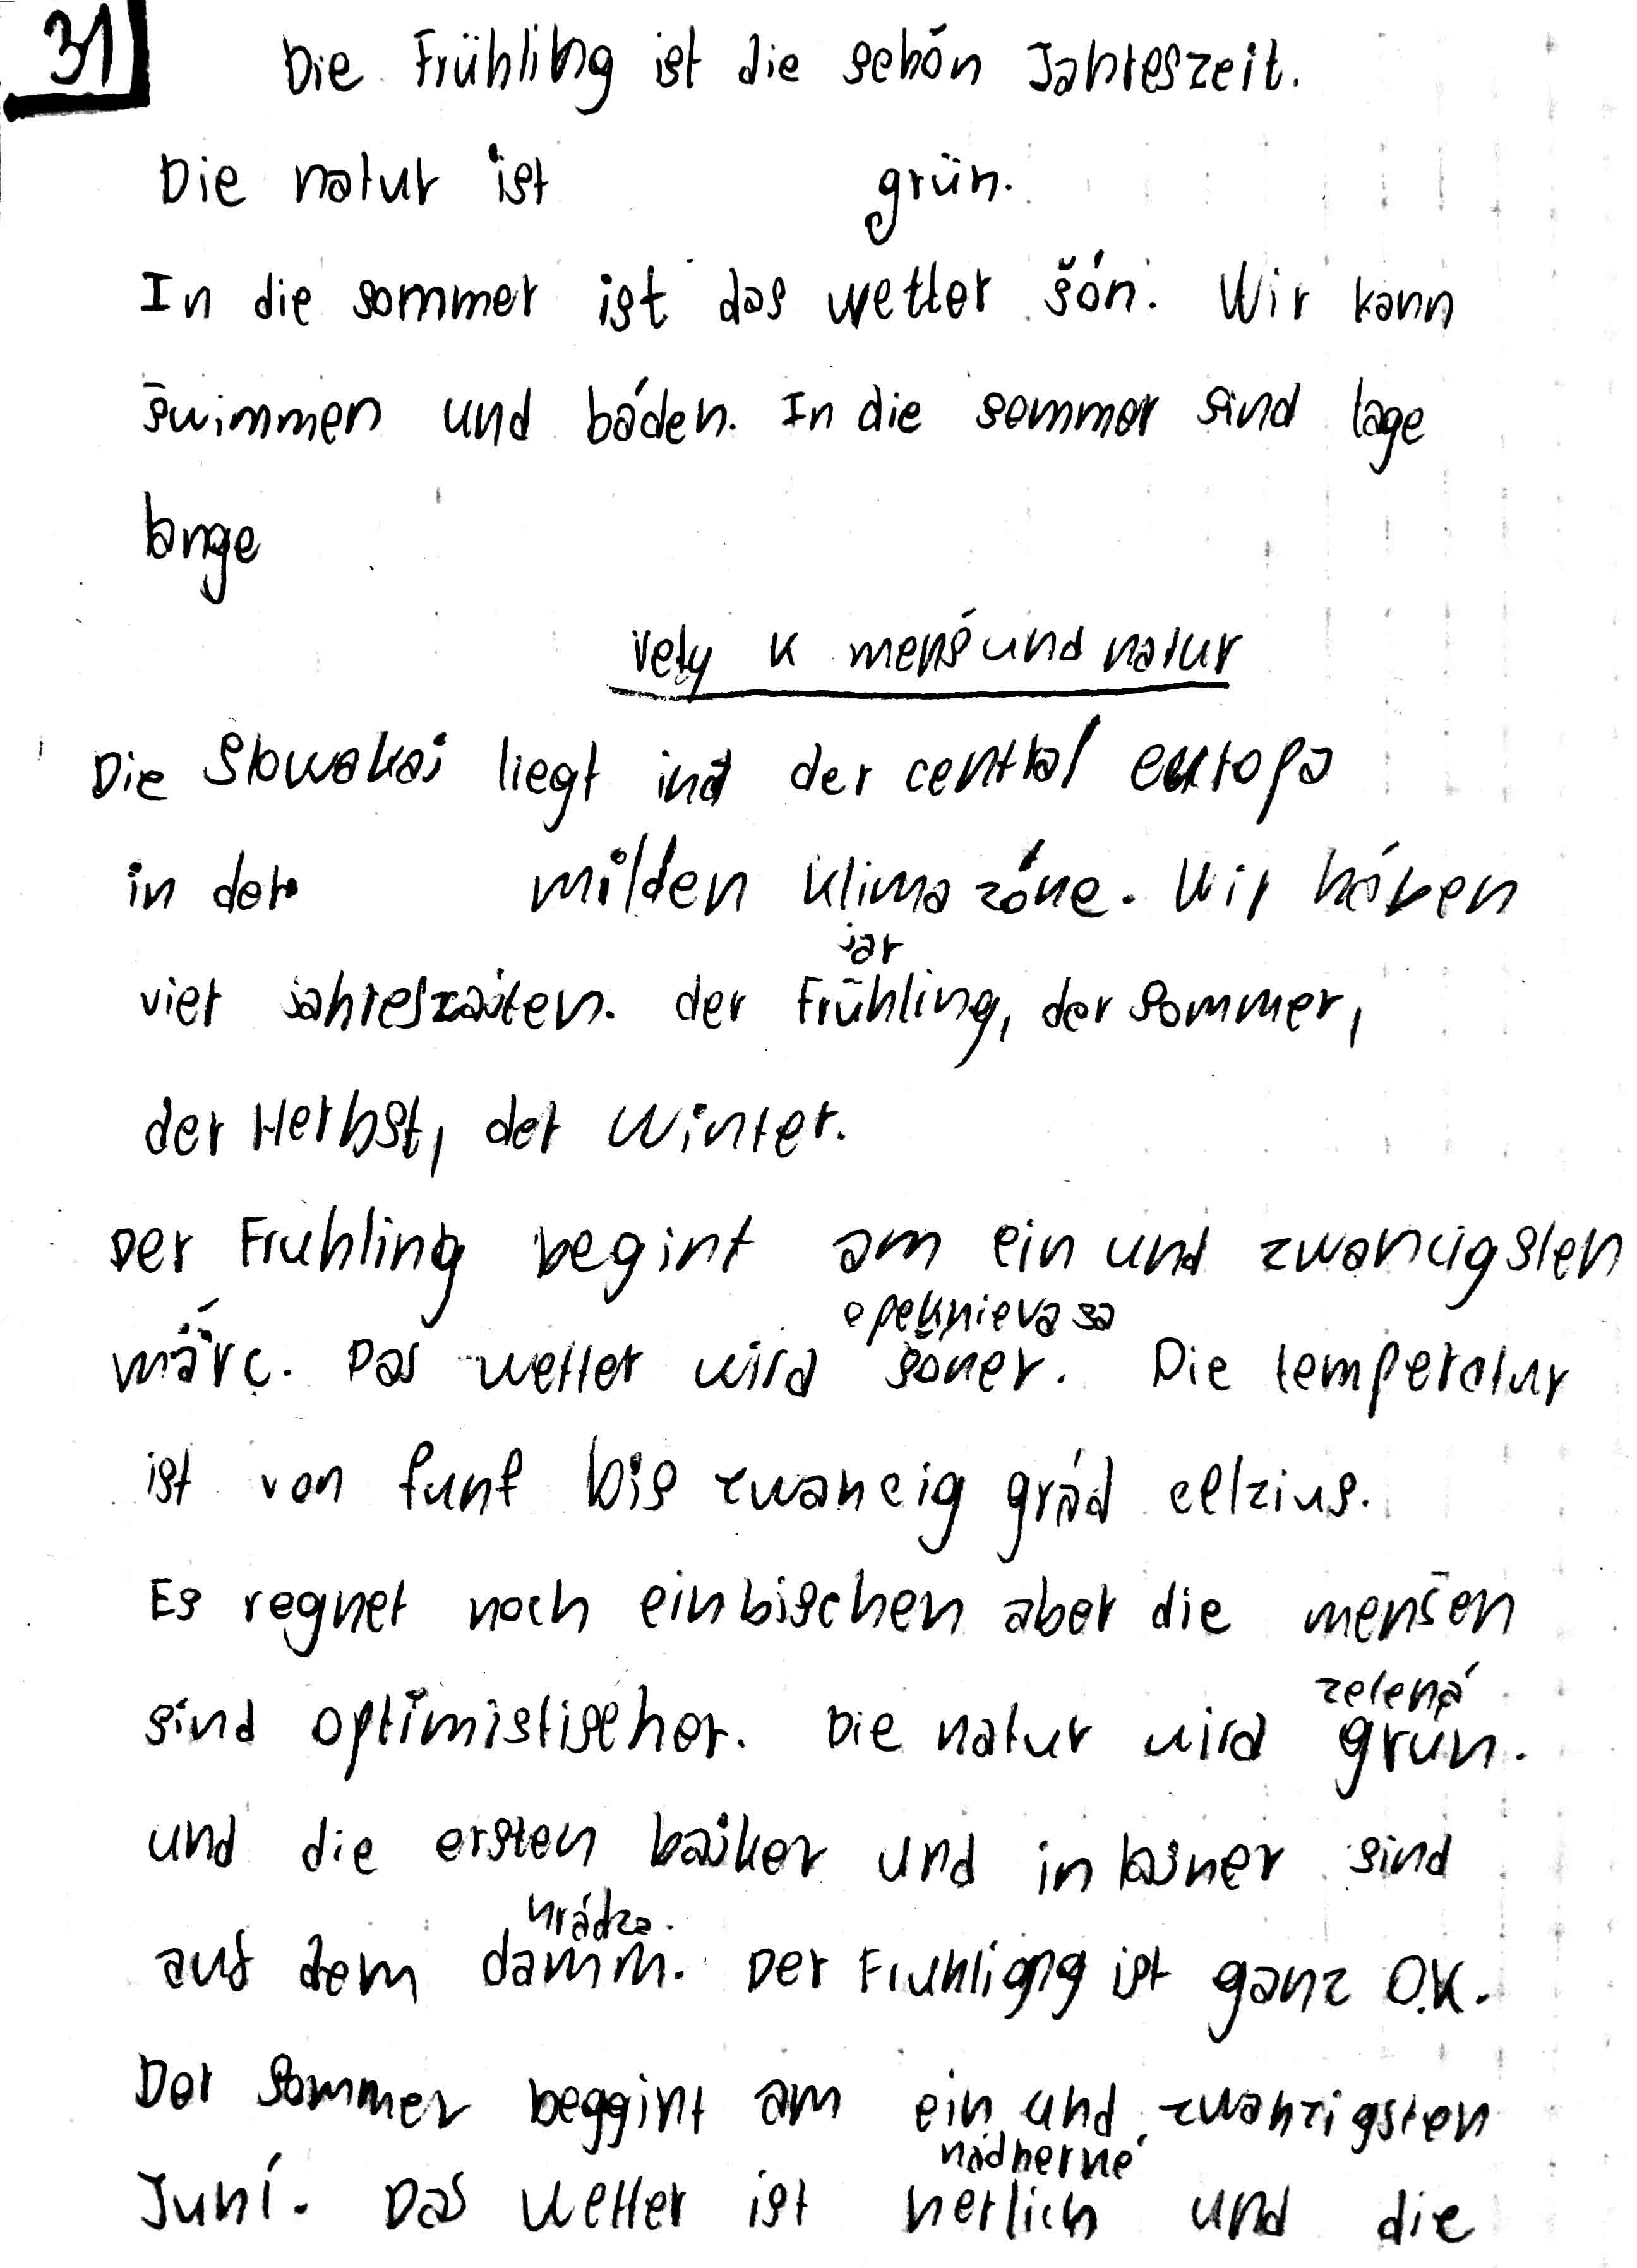 31
Die Frühling ist die schön Jahreszeit.
Die natur ist grün.
In die sommer ist das wetter šón. Wir kann
swimmen und báden. In die sommer sind tage
lange
vety k menš und natur
Die Slowakai liegt in der central europa
in der milden klima zóne. Wir háben
vier jahreszaiten. der Frühling, der sommer,
jar
der Herbst, der Winter.
Der Fruhling begint am ein und zwancigsten
opeknieva sa
märc. Das wetter wird šöner. Die temperatur
ist von funf bis zwancig grád celzius.
Es regnet noch ein bischen aber die menšen
zelená
sind optimistischer. Die natur wird grün.
und die ersten baiker und in lajner sind
hrádza.
auf dem damm. Der Fruhligng ist ganz O.K.
Der Sommer beggint am ein und zwanzigsten
nádherné
Juní. Das wetter ist herlich und die